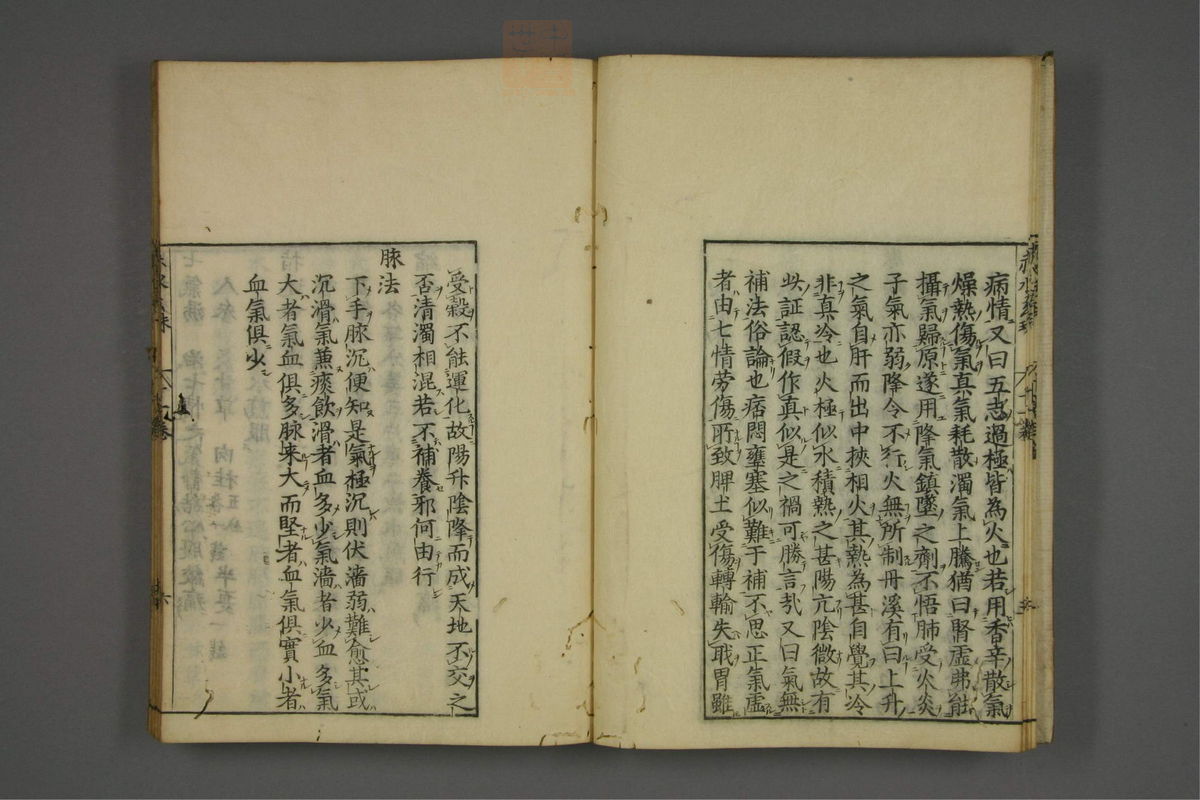 病情又曰五志過極皆為火也若用香辛散氣
燥熱傷氣真氣耗散濁氣上騰猶曰腎虛弗能
攝氣歸原遂用降氣鎮墜之劑不悟肺受火炎
子氣亦弱降令不行火無所制丹溪有曰上升
之氣自肝而出中挾相火其熱為甚自覺其冷
非真冷也火極似水積熱之甚陽亢陰微故有
此証認假作真似是之禍可勝言哉又曰氣無
補法俗論也痞悶壅塞似難于補不思正氣虛
者由七情劳傷所致脾土受傷轉輸失職胃雖
受穀不能運化故陽升陰降而成天地不交之
否清濁相混若不補養邪何由行
脉法
下手脉沉便知是氣極沉則伏濇弱難愈其或
沉滑氣兼痰飲滑者血多少氣濇者少血多氣
大者氣血俱多脉来大而堅者血氣俱實小者
血氣俱少